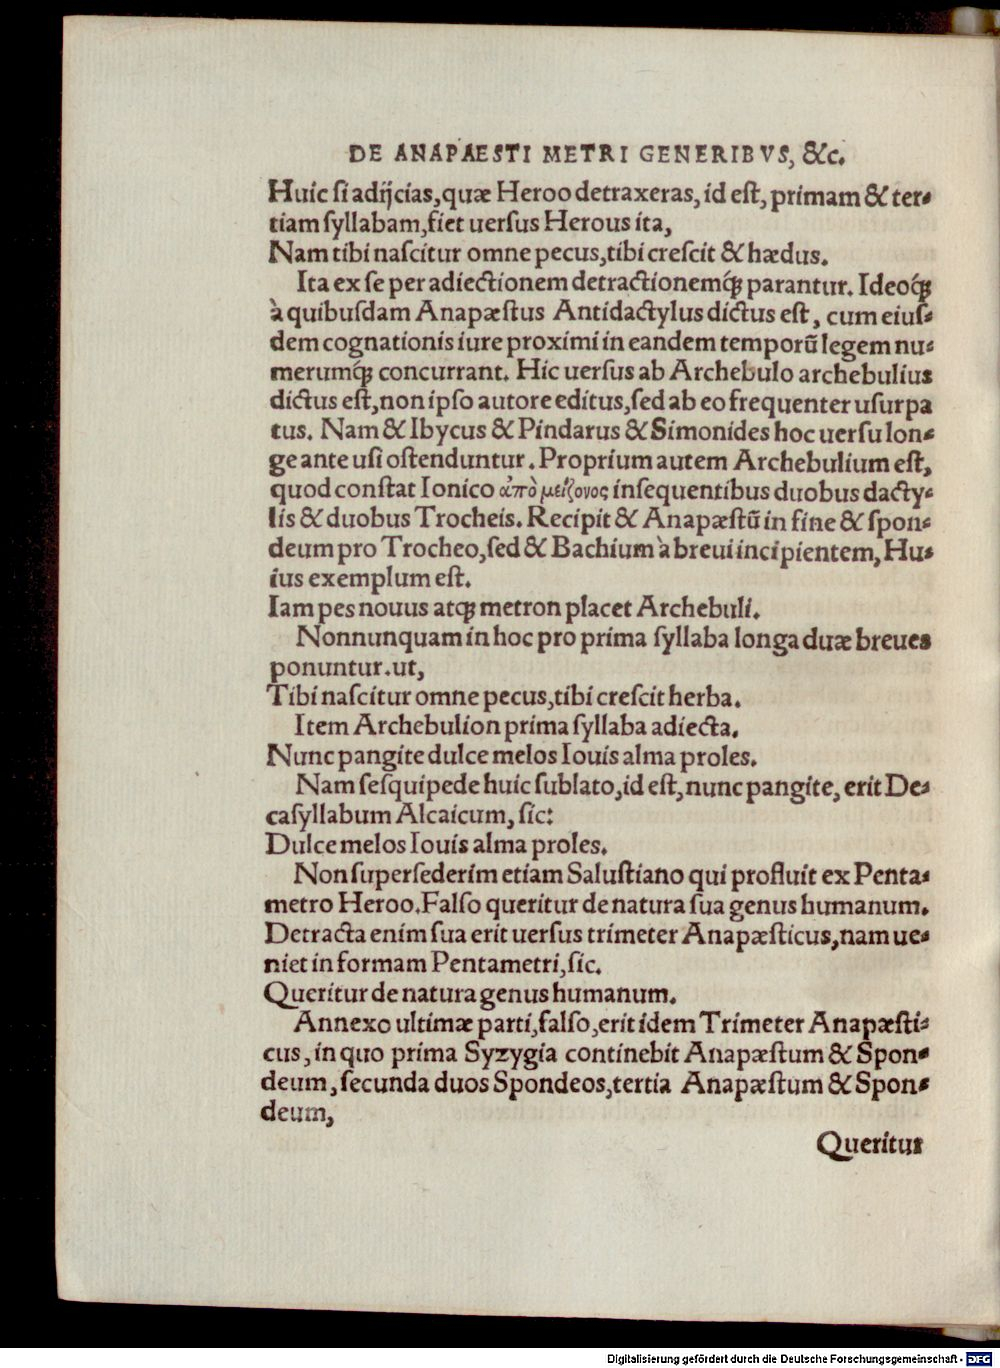 DE ANAPAESTI METRI GENERIBVS, &c.
Huic si adijcias, quæ Heroo detraxeras, id est, primam & ter-
tiam syllabam, fiet uersus Herous ita,
Nam tibi nascitur omne pecus, tibi crescit & hædus.
Ita ex se per adiectionem detractionemq́ꝫ parantur. Ideoq́ꝫ
à quibusdam Anapæstus Antidactylus dictus est, cum eius-
dem cognationis iure proximi in eandem temporū legem nu-
merumq́ꝫ concurrant. Hic uersus ab Archebulo archebulius
dictus est, non ipso autore editus, sed ab eo frequenter usurpa
tus. Nam & Ibycus & Pindarus & Simonides hoc uersu lon-
ge ante usi ostenduntur. Proprium autem Archebulium est,
quod constat Ionico ἀπὸ μείζονος insequentibus duobus dacty-
lis & duobus Trocheis. Recipit & Anapæstū in fine & spon-
deum pro Trocheo, sed & Bachium à breui incipientem, Hu-
ius exemplum est.
Iam pes nouus atqꝫ metron placet Archebuli.
Nonnunquam in hoc pro prima syllaba longa duæ breues
ponuntur. ut,
Tibi nascitur omne pecus, tibi crescit herba.
Item Archebulion prima syllaba adiecta.
Nunc pangite dulce melos Iouis alma proles.
Nam sesquipede huic sublato, id est, nunc pangite, erit De-
casyllabum Alcaicum, sic:
Dulce melos Iouis alma proles.
Non supersederim etiam Salustiano qui profluit ex Penta-
metro Heroo. Falso queritur de natura sua genus humanum.
Detracta enim sua erit uersus trimeter Anapæsticus, nam ue-
niet in formam Pentametri, sic.
Queritur de natura genus humanum.
Annexo ultimæ parti, falso, erit idem Trimeter Anapæsti-
cus, in quo prima Syzygia continebit Anapæstum & Spon-
deum, secunda duos Spondeos, tertia Anapæstum & Spon-
deum,
Queritur
Digitalisierung gefördert durch die Deutsche Forschungsgemeinschaft - DFG